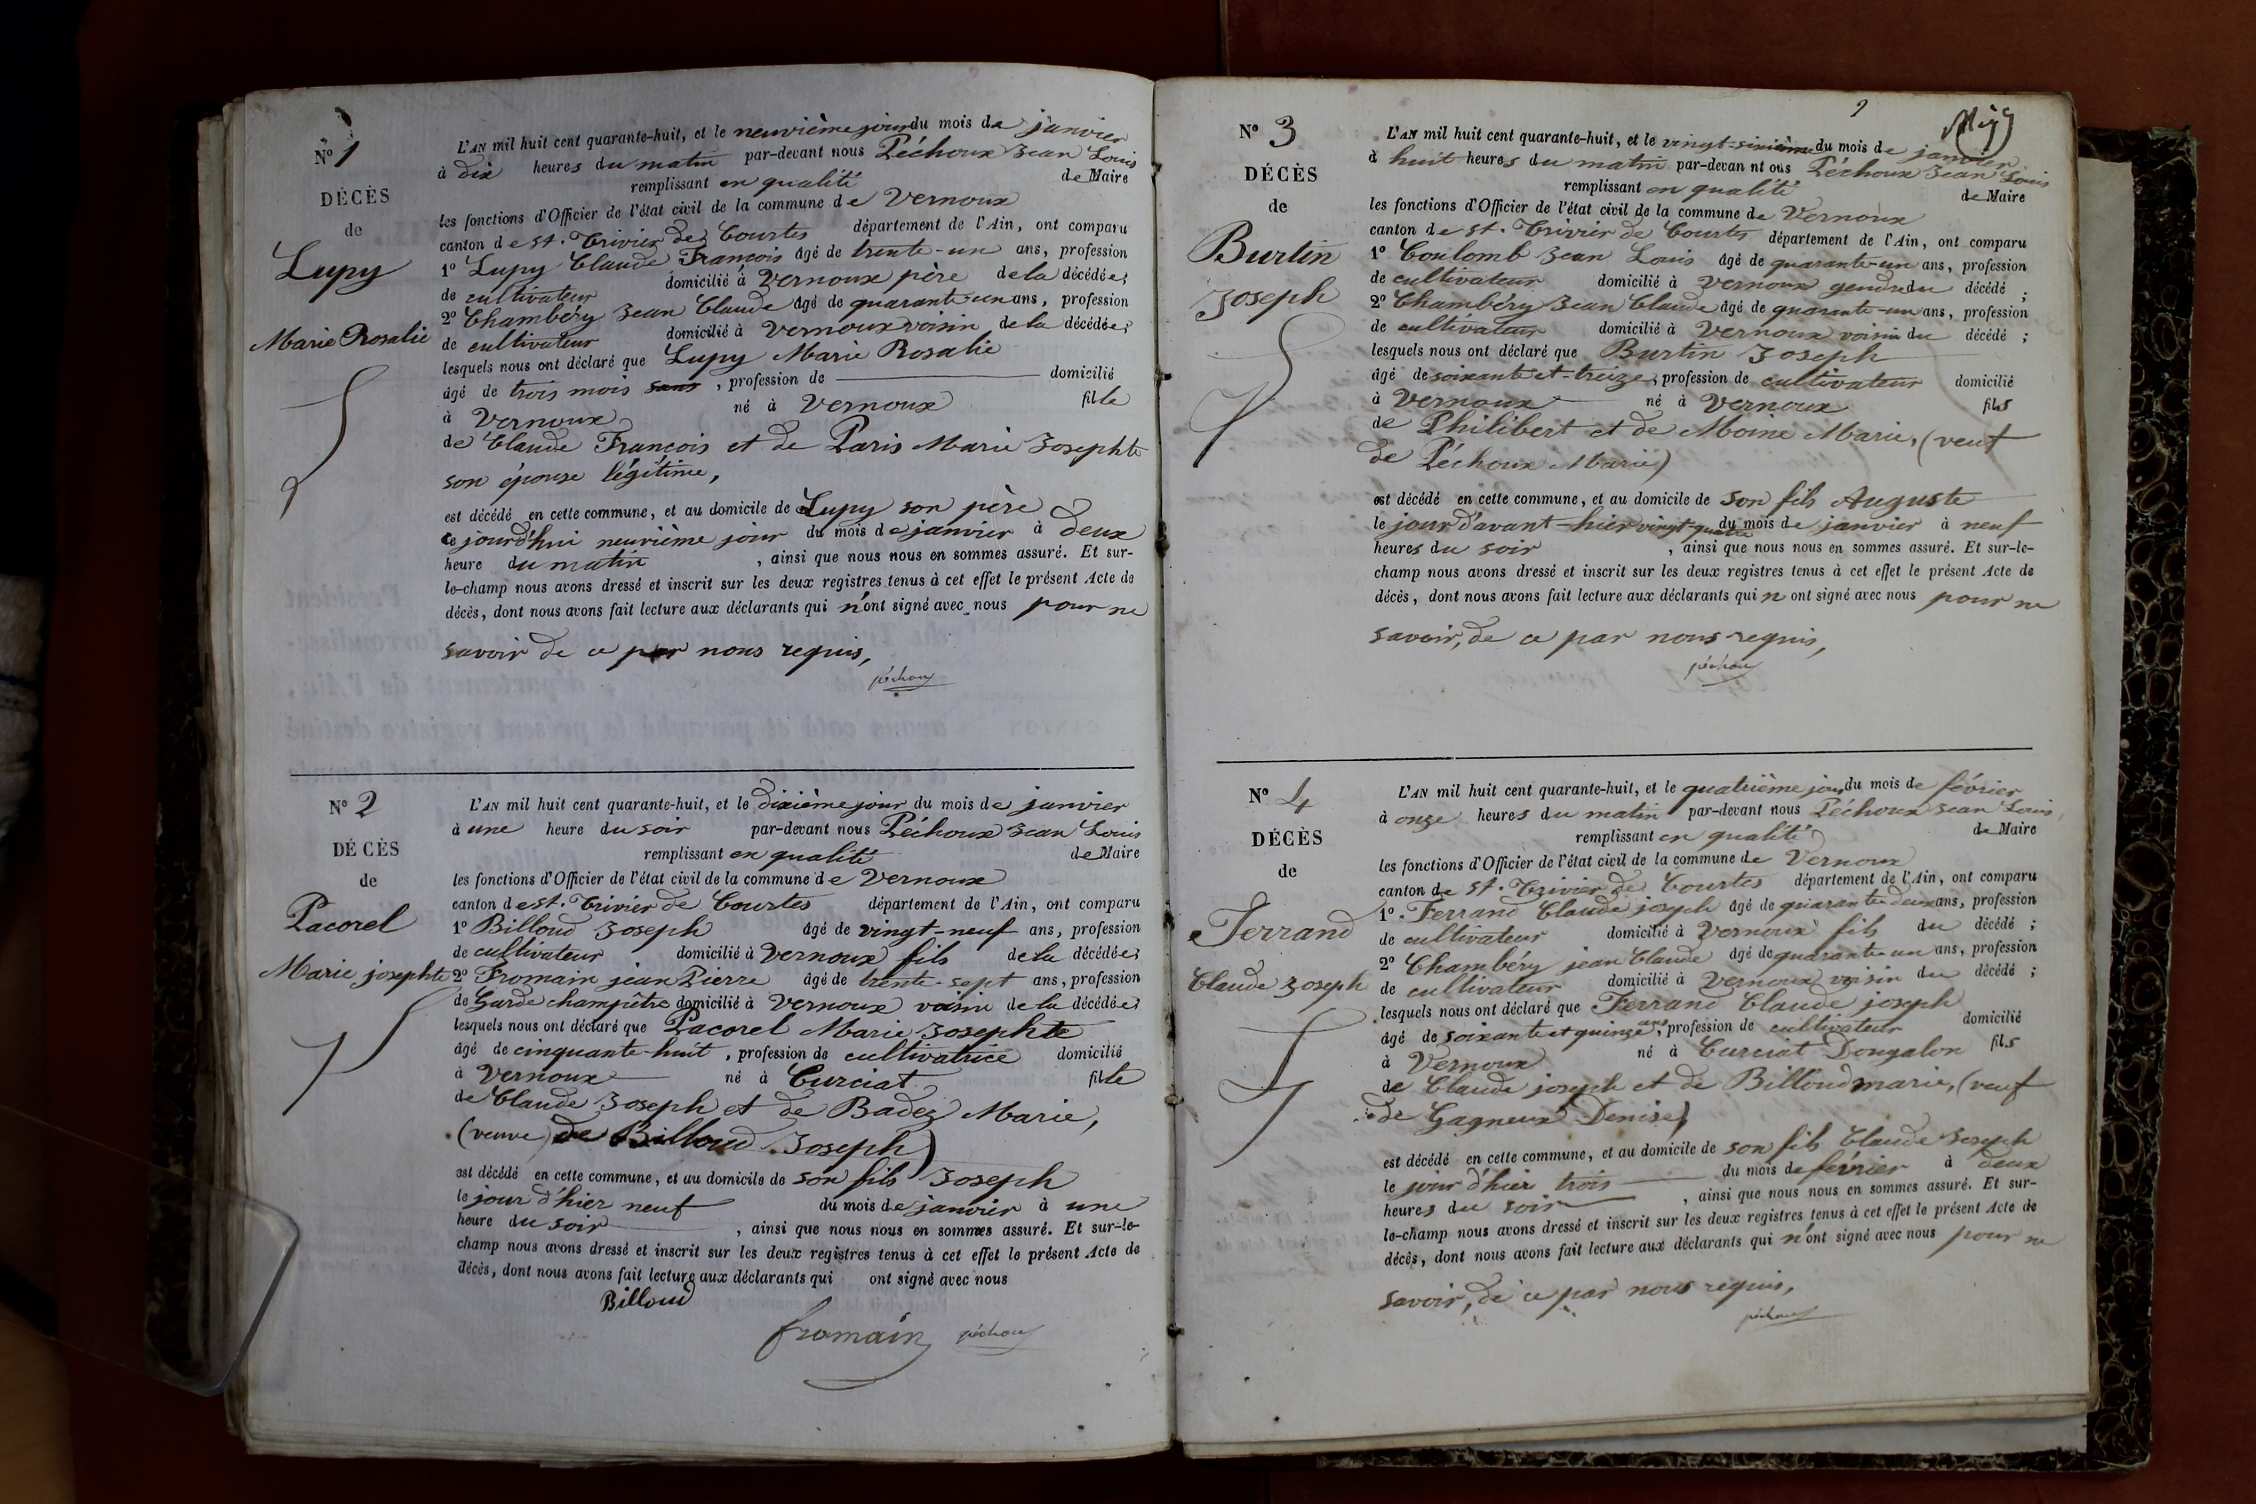 N° 1
DÉCÈS
de
Lupy
Marie Rosalie
L'AN mil huit cent quarante-huit, et le neuvième jour du mois de janvier
à dix heures du matin par-devant nous Péchoux Jean Louis
remplissant en qualité de Maire
les fonctions d'Officier de l'état civil de la commune de Vernoux
canton de St. Trivier de Courtes département de l'Ain, ont comparu
1° Lupy Claude François âgé de trente-un ans, profession
de cultivateur domicilié à Vernoux père de la décédée;
2° Chambéry Jean Claude âgé de quarante-un ans, profession
de cultivateur domicilié à Vernoux voisin de la décédée;
lesquels nous ont déclaré que Lupy Marie Rosalie
âgé de trois mois sans, profession de domicilié
à Vernoux né à Vernoux fille
de Claude François et de Paris Marie Josephte
son épouse légitime,
est décédé en cette commune, et au domicile de Lupy son père
ce jourd'hui neuvième jour du mois de janvier à deux
heure du matin, ainsi que nous nous en sommes assuré. Et sur-
le-champ nous avons dressé et inscrit sur les deux registres tenus à cet effet le présent Acte de
décès, dont nous avons fait lecture aux déclarants qui n'ont signé avec nous pour ne
savoir de ce par nous requis,
péchoux
N° 2
DÉCÈS
de
Pacorel
Marie josephte
L'AN mil huit cent quarante-huit, et le dixième jour du mois de janvier
à une heure du soir par-devant nous Péchoux Jean Louis
remplissant en qualité de Maire
les fonctions d'Officier de l'état civil de la commune de Vernoux
canton de St. Trivier de Courtes département de l'Ain, ont comparu
1° Billoud Joseph âgé de vingt-neuf ans, profession
de cultivateur domicilié à Vernoux fils de la décédée;
2° Fromain jean Pierre âgé de trente-sept ans, profession
de Garde champêtre domicilié à Vernoux voisin de la décédée;
lesquels nous ont déclaré que Pacorel Marie Josephte
âgé de cinquante-huit, profession de cultivatrice domicilié
à Vernoux né à Curciat fille
de Claude Joseph et de Badez Marie,
(veuve) de Billoud Joseph)
est décédé en cette commune, et au domicile de son fils Joseph
le jour d'hier neuf du mois de janvier à une
heure du soir, ainsi que nous nous en sommes assuré. Et sur-le-
champ nous avons dressé et inscrit sur les deux registres tenus à cet effet le présent Acte de
décès, dont nous avons fait lecture aux déclarants qui ont signé avec nous
Billoud
fromain péchoux
N° 3
DÉCÈS
de
Burtin
Joseph
L'AN mil huit cent quarante-huit, et le vingt-sixième du mois de janvier
à huit heures du matin par-devan nt ous Péchoux Jean Louis
remplissant en qualité de Maire
les fonctions d'Officier de l'état civil de la commune de Vernoux
canton de St. Trivier de Courtes département de l'Ain, ont comparu
1° Coulomb Jean Louis âgé de quarante-un ans, profession
de cultivateur domicilié à Vernoux gendre du décédé;
2° Chambéry Jean Claude âgé de quarante-un ans, profession
de cultivateur domicilié à Vernoux voisin du décédé;
lesquels nous ont déclaré que Burtin Joseph
âgé de soixante et treize, profession de cultivateur domicilié
à Vernoux né à Vernoux fils
de Philibert et de Moine Marie, (veuf
de Péchoux Marie)
est décédé en cette commune, et au domicile de son fils Auguste
le jour d'avant-hier vingt-quatre du mois de janvier à neuf
heures du soir, ainsi que nous nous en sommes assuré. Et sur-le-
champ nous avons dressé et inscrit sur les deux registres tenus à cet effet le présent Acte de
décès, dont nous avons fait lecture aux déclarants qui n ont signé avec nous pour ne
savoir, de ce par nous requis,
péchoux
N° 4
DÉCÈS
de
Ferrand
Claude Joseph
L'AN mil huit cent quarante-huit, et le quatrième jour du mois de février
à onze heures du matin par-devant nous Péchoux Jean Louis,
remplissant en qualité de Maire
les fonctions d'Officier de l'état civil de la commune de Vernoux
canton de St. Trivier de Courtes département de l'Ain, ont comparu
1° Ferrand Claude joseph âgé de quarante-deux ans, profession
de cultivateur domicilié à Vernoux fils du décédé;
2° Chambéry jean Claude âgé de quarante-un ans, profession
de cultivateur domicilié à Vernoux voisin du décédé;
lesquels nous ont déclaré que Ferrand Claude joseph
âgé de soixante et quinze ans, profession de cultivateur domicilié
à Vernoux né à Curciat Dongalon fils
de Claude joseph et de Billoud marie, (veuf
de Gagneux Denise)
est décédé en cette commune, et au domicile de son fils Claude Joseph
le jour d'hier trois du mois de février à deux
heures du soir, ainsi que nous nous en sommes assuré. Et sur-
le-champ nous avons dressé et inscrit sur les deux registres tenus à cet effet le présent Acte de
décès, dont nous avons fait lecture aux déclarants qui n'ont signé avec nous pour ne
savoir, de ce par nous requis,
péchoux